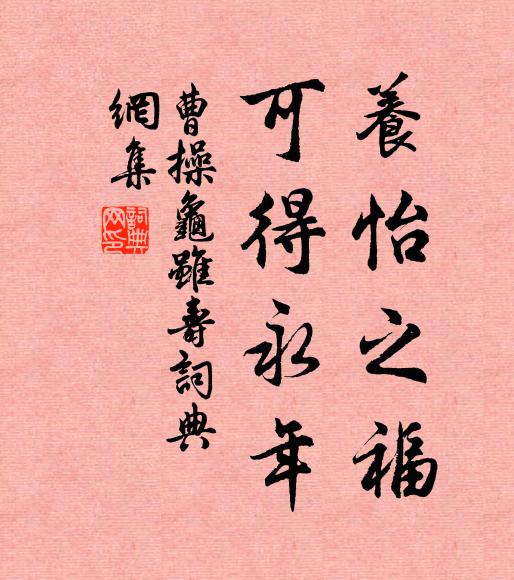 養怡之福
可得永年
曹操龜雖壽詞典
網集
詞典
网印